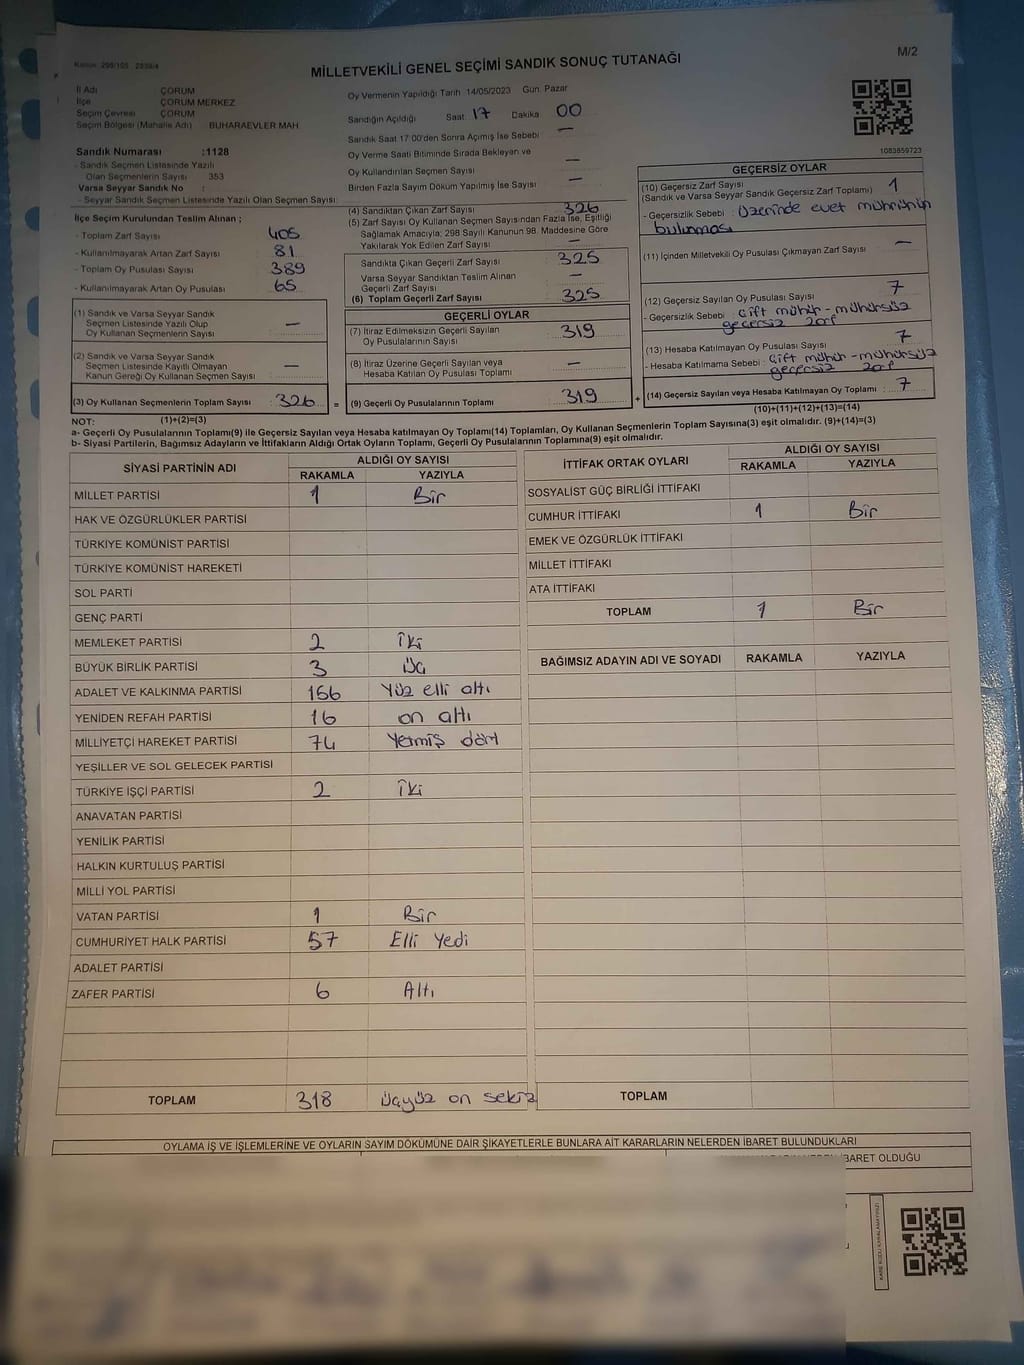 Kanun: 298/105 2839/4
M/2
MİLLETVEKİLİ GENEL SEÇİMİ SANDIK SONUÇ TUTANAĞI
İl Adı ÇORUM
İlçe ÇORUM MERKEZ
Seçim Çevresi ÇORUM
Seçim Bölgesi (Mahalle Adı) : BUHARAEVLER MAH
Sandık Numarası :1128
- Sandık Seçmen Listesinde Yazılı
Olan Seçmenlerin Sayısı 353
Varsa Seyyar Sandık No :
- Seyyar Sandık Seçmen Listesinde Yazılı Olan Seçmen Sayısı:
İlçe Seçim Kurulundan Teslim Alınan ;
- Toplam Zarf Sayısı 405
- Kullanılmayarak Artan Zarf Sayısı : 81
- Toplam Oy Pusulası Sayısı : 389
- Kullanılmayarak Artan Oy Pusulası : 65
(1) Sandık ve Varsa Seyyar Sandık
Seçmen Listesinde Yazılı Olup
Oy Kullanan Seçmenlerin Sayısı : —
(2) Sandık ve Varsa Seyyar Sandık
Seçmen Listesinde Kayıtlı Olmayan
Kanun Gereği Oy Kullanan Seçmen Sayısı : —
(3) Oy Kullanan Seçmenlerin Toplam Sayısı : 326 =
(1)+(2)=(3)
Oy Vermenin Yapıldığı Tarih 14/05/2023 Gün. Pazar
Sandığın Açıldığı Saat 17 Dakika 00
Sandık Saat 17:00'den Sonra Açımış İse Sebebi : —
Oy Verme Saati Bitiminde Sırada Bekleyen ve
Oy Kullandırılan Seçmen Sayısı : —
Birden Fazla Sayım Döküm Yapılmış İse Sayısı : —
(4) Sandıktan Çıkan Zarf Sayısı : 326
(5) Zarf Sayısı Oy Kullanan Seçmen Sayısından Fazla İse, Eşitliği
Sağlamak Amacıyla; 298 Sayılı Kanunun 98. Maddesine Göre
Yakılarak Yok Edilen Zarf Sayısı : —
Sandıkta Çıkan Geçerli Zarf Sayısı : 325
Varsa Seyyar Sandıktan Teslim Alınan
Geçerli Zarf Sayısı : —
(6) Toplam Geçerli Zarf Sayısı : 325
GEÇERLİ OYLAR
(7) İtiraz Edilmeksizin Geçerli Sayılan
Oy Pusulalarının Sayısı : 319
(8) İtiraz Üzerine Geçerli Sayılan veya
Hesaba Katılan Oy Pusulası Toplamı : —
(9) Geçerli Oy Pusulalarının Toplamı : 319 +
1083859723
GEÇERSİZ OYLAR
(10) Geçersiz Zarf Sayısı
(Sandık ve Varsa Seyyar Sandık Geçersiz Zarf Toplamı) : 1
- Geçersizlik Sebebi : Üzerinde evet mührünün
bulunması
(11) İçinden Milletvekili Oy Pusulası Çıkmayan Zarf Sayısı : —
(12) Geçersiz Sayılan Oy Pusulası Sayısı : 7
- Geçersizlik Sebebi : Çift mühür - mühürsüz
geçersiz zarf
(13) Hesaba Katılmayan Oy Pusulası Sayısı : 7
- Hesaba Katılmama Sebebi : Çift mühür - mühürsüz
geçersiz zarf
(14) Geçersiz Sayılan veya Hesaba Katılmayan Oy Toplamı : 7
(10)+(11)+(12)+(13)=(14)
NOT:
a- Geçerli Oy Pusulalarının Toplam(9) ile Geçersiz Sayılan veya Hesaba katılmayan Oy Toplamı(14) Toplamları, Oy Kullanan Seçmenlerin Toplam Sayısına(3) eşit olmalıdır. (9)+(14)=(3)
b- Siyasi Partilerin, Bağımsız Adayların ve İttifakların Aldığı Ortak Oyların Toplamı, Geçerli Oy Pusulalarının Toplamına(9) eşit olmalıdır.
SİYASİ PARTİNİN ADI
ALDIĞI OY SAYISI
RAKAMLA YAZIYLA
MİLLET PARTİSİ 1 Bir
HAK VE ÖZGÜRLÜKLER PARTİSİ
TÜRKİYE KOMÜNİST PARTİSİ
TÜRKİYE KOMÜNİST HAREKETİ
SOL PARTİ
GENÇ PARTİ
MEMLEKET PARTİSİ 2 İki
BÜYÜK BİRLİK PARTİSİ 3 Üç
ADALET VE KALKINMA PARTİSİ 156 Yüz elli altı
YENİDEN REFAH PARTİSİ 16 on altı
MİLLİYETÇİ HAREKET PARTİSİ 74 Yetmiş dört
YEŞİLLER VE SOL GELECEK PARTİSİ
TÜRKİYE İŞÇİ PARTİSİ 2 İki
ANAVATAN PARTİSİ
YENİLİK PARTİSİ
HALKIN KURTULUŞ PARTİSİ
MİLLİ YOL PARTİSİ
VATAN PARTİSİ 1 Bir
CUMHURİYET HALK PARTİSİ 57 Elli Yedi
ADALET PARTİSİ
ZAFER PARTİSİ 6 Altı
TOPLAM 318 üçyüz on sekiz
İTTİFAK ORTAK OYLARI
ALDIĞI OY SAYISI
RAKAMLA YAZIYLA
SOSYALİST GÜÇ BİRLİĞİ İTTİFAKI
CUMHUR İTTİFAKI 1 Bir
EMEK VE ÖZGÜRLÜK İTTİFAKI
MİLLET İTTİFAKI
ATA İTTİFAKI
TOPLAM 1 Bir
BAĞIMSIZ ADAYIN ADI VE SOYADI RAKAMLA YAZIYLA
TOPLAM
OYLAMA İŞ VE İŞLEMLERİNE VE OYLARIN SAYIM DÖKÜMÜNE DAİR ŞİKAYETLERLE BUNLARA AİT KARARLARIN NELERDEN İBARET BULUNDUKLARI
İBARET OLDUĞU